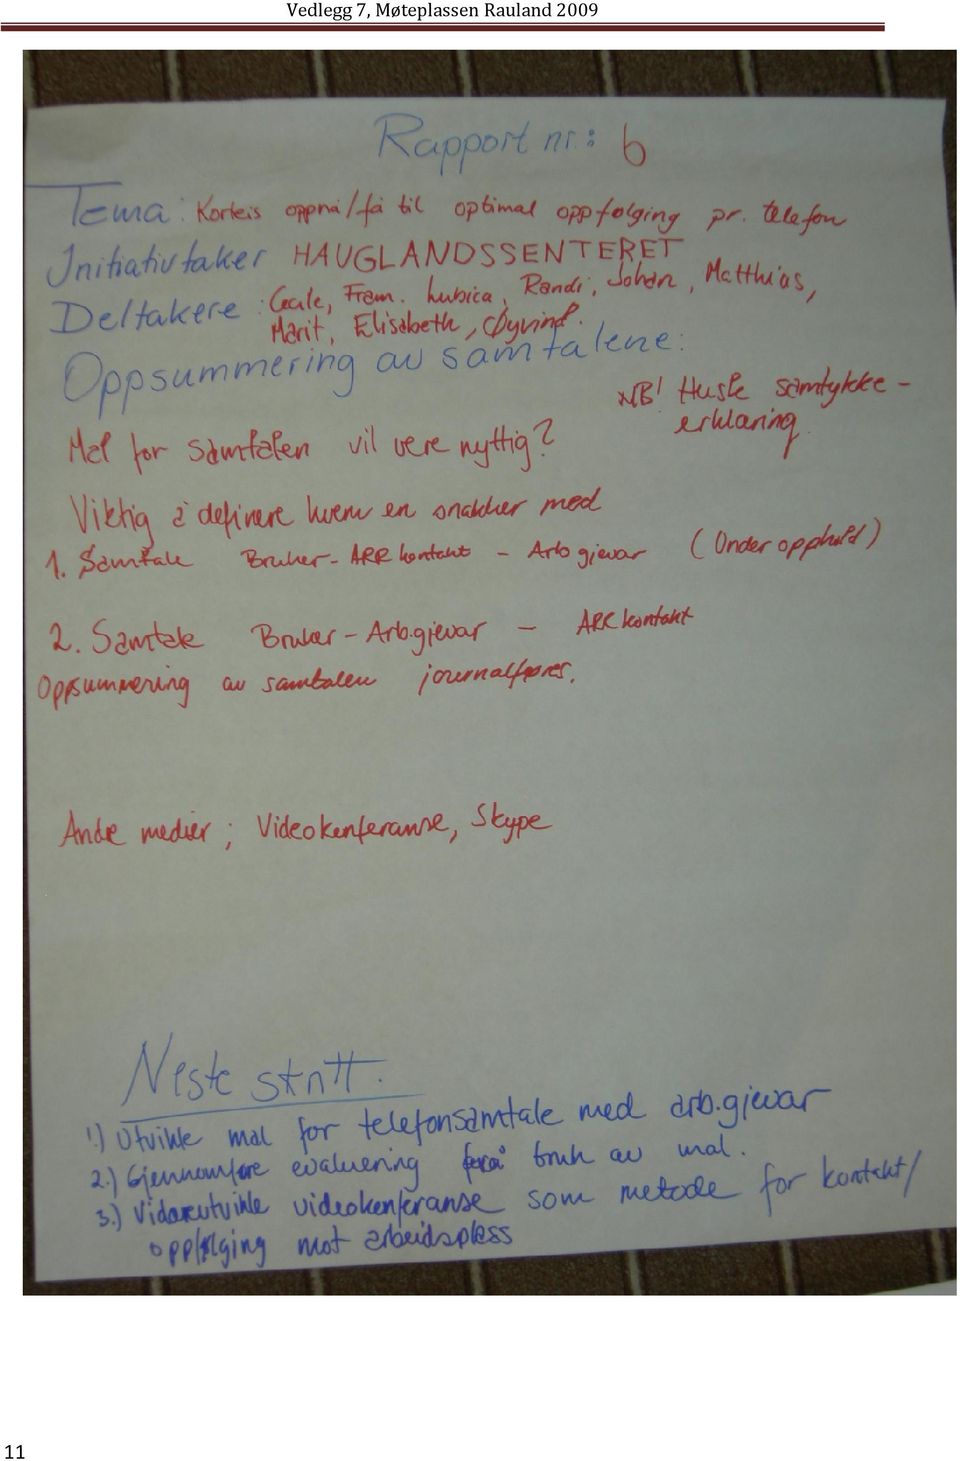 Vedlegg 7, Møteplassen Rauland 2009
Rapport nr: 6
Tema: Korleis oppnå/få til optimal oppfølging pr. telefon
Initiativtaker HAUGLANDSSENTERET
Deltakere: Cecilie, Fram. Lubica, Randi, Johan, Matthias,
Marit, Elisabeth, Øyvind.
Oppsummering av samtalene:
NB! Huske samtykke-
erklæring
Mal for samtalen vil vere nyttig?
Viktig å definere kvem en snakker med
1. Samtale Bruker - ARR kontakt - Arb gievar (Under opphold)
2. Samtale Bruker - Arb.gievar - ARR kontakt
Oppsummering av samtalen journalføres.
Andre medier; Videokonferanse, Skype
Neste skritt.
1.) Utvikle mal for telefonsamtale med arb.gievar
2.) Gjennomføre evaluering bruk av mal.
3.) Vidareutvikle videokonferanse som metode for kontakt/
oppfølging mot arbeidsplass
11